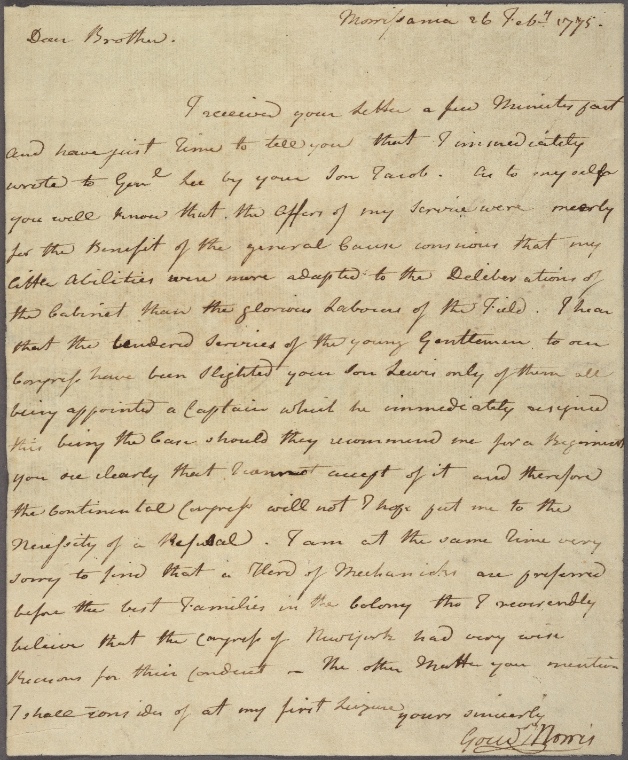 Morrisania 26 Feby 1775.
Dear Brother.
I received your Letter a few Minutes past
and have just Time to tell you that I immediately
wrote to Genl Lee by your Son Jacob. As to myself
you well know that the Offers of my Service were merly
for the Benefit of the general Cause conscious that my
little Abilities were more adapted to the Deliberations of
the Cabinet than the glorious Labours of the Field. I hear
that the tendered Services of the young Gentlemen to our
Congress have been slighted your Son Lewis only of them all
being appointed a Captain which he immediately resigned
this being the Case should they recommend me for a Regiment
you see clearly that I cannot accept of it and therefore
the Continental Congress will not I hope put me to the
Necessity of a Refusal. I am at the same Time very
sorry to find that a Herd of Mechanicks are preferred
before the best Families in the Colony tho I reverendly
believe that the Congress of Newyork had very wise
Reasons for their Conduct – The other Matter you mention
I shall consider of at my first Leizure yours sincerely
Gouvr Morris